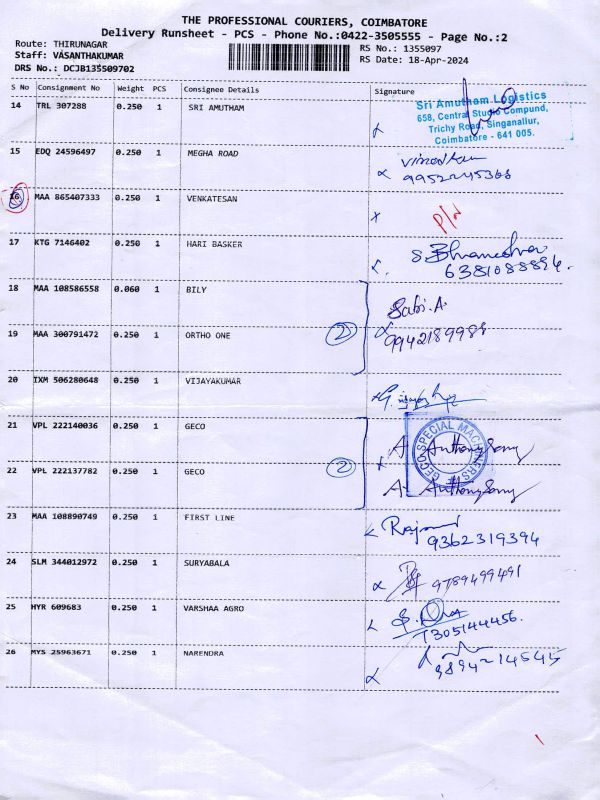 THE PROFESSIONAL COURIERS, COIMBATORE
Delivery Runsheet - PCS - Phone No.:0422-3505555 - Page No.:2
Route: THIRUNAGAR
Staff: VASANTHAKUMAR
DRS No.: DCJB135509702
RS No.: 1355097
RS Date: 18-Apr-2024
S No Consignment No Weight PCS Consignee Details Signature
14 TRL 307288 0.250 1 SRI AMUTHAM
Sri Amutham Logistics
658, Central Studio Compund,
Trichy Road, Singanallur,
Coimbatore - 641 005.
15 EDQ 24596497 0.250 1 MEGHA ROAD
9952245366
16 MAA 865407333 0.250 1 VENKATESAN P/N
17 KTG 7146402 0.250 1 HARI BASKER
6381088894.
18 MAA 108586558 0.060 1 BILY Sabi.A
19 MAA 300791472 0.250 1 ORTHO ONE 2 9942189988
20 IXM 506280648 0.250 1 VIJAYAKUMAR
21 VPL 222140036 0.250 1 GECO A. Anthonysamy
GECO SPECIAL MACHINERS
22 VPL 222137782 0.250 1 GECO 2 A. Anthonysamy
23 MAA 108890749 0.250 1 FIRST LINE
9362319394
24 SLM 344012972 0.250 1 SURYABALA 9789499491
25 HYR 609683 0.250 1 VARSHAA AGRO
7305144456.
26 MYS 25963671 0.250 1 NARENDRA 9894214545